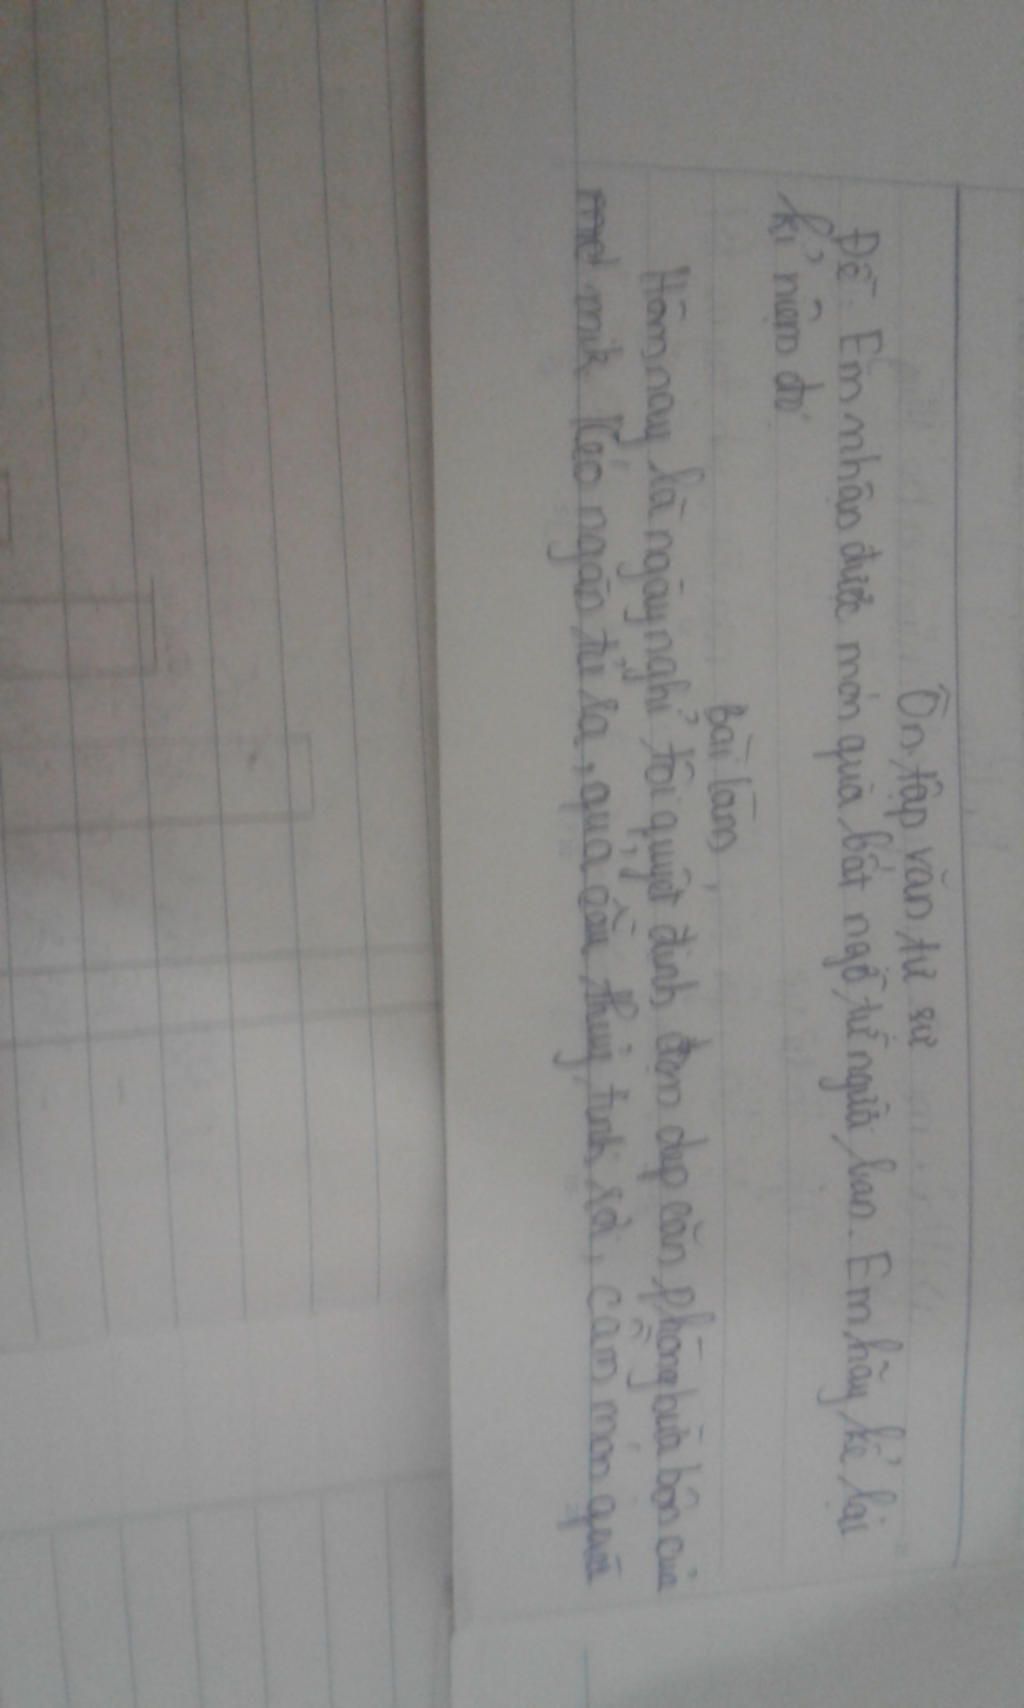 Ôn tập văn tự sự
Đề: Em nhận được món quà bất ngờ từ người bạn. Em hãy kể lại
kỉ niệm đó
Bài làm
Hôm nay là ngày nghỉ tôi quyết định dọn dẹp căn phòng bừa bộn của
mik Kéo ngăn tủ ra, quả cầu thủy tinh rơi, cầm món quà